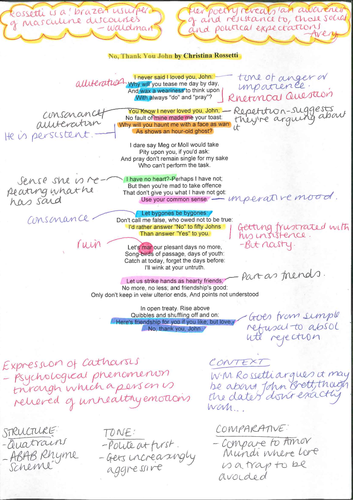 Rossetti is a 'brazen usurper
of masculine discourses'
- Waldman
Her poetry reveals 'an awareness
of and resistance to, those social
and political expectations'
- Avery
No, Thank You John by Christina Rossetti
I never said I loved you, John:
Why will you tease me day by day,
And wax a weariness to think upon
With always "do" and "pray"?
alliteration
tone of anger or
impatience.
Rhetorical Question
You Know I never loved you, John;
No fault of mine made me your toast:
Why will you haunt me with a face as wan
As shows an hour-old ghost?
consonance/
alliteration
He is persistent.
Repetition - suggests
they're arguing about
it
I dare say Meg or Moll would take
Pity upon you, if you'd ask:
And pray don't remain single for my sake
Who can't perform the task.
I have no heart?-Perhaps I have not;
But then you're mad to take offence
That don't give you what I have not got:
Use your common sense
Sense she is re-
peating what he
has said
imperative mood.
Let bygones be bygones:
Don't call me false, who owed not to be true:
I'd rather answer "No" to fifty Johns
Than answer "Yes" to you.
consonance
Getting frustrated with
his insistence
- But nasty
Let's mar our plesant days no more,
Song-birds of passage, days of youth:
Catch at today, forget the days before:
I'll wink at your untruth.
ruin
Let us strike hands as hearty friends;
No more, no less, and friendship's good:
Only don't keep in veiw ulterior ends, And points not understood
Part as friends.
In open treaty. Rise above
Quibbles and shuffling off and on:
Here's friendship for you if you like; but love,
No, thank you, John.
Goes from simple
refusal to absol
ute rejection
Expression of Catharsis
- Psychological phenomenon
through which a person is
relieved of unhealthy emotions
CONTEXT
WM Rossetti argues it may
be about John Brett though
the dates don't exactly
work...
STRUCTURE:
- Quatrains
- ABAB Rhyme
Scheme
TONE:
- Polite at first.
- Gets increasingly
aggressive
COMPARATIVE:
- Compare to Amor
Mundi where love
is a trap to be
avoided